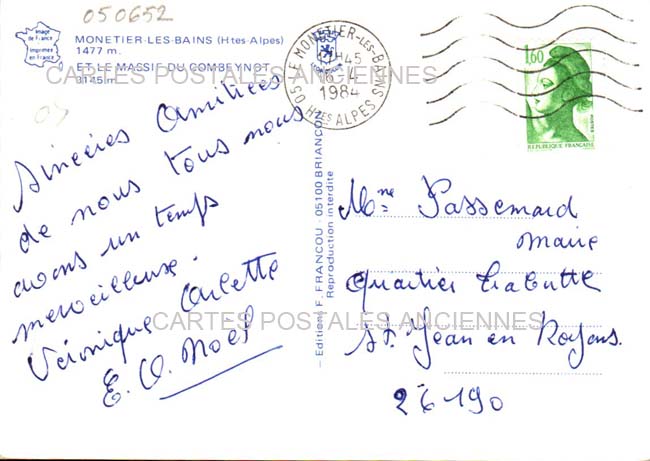 050652
Image de France
Imprimées en France
MONETIER-LES-BAINS (Htes-Alpes)
1477 m.
ET LE MASSIF DU COMBEYNOT
3145 m.
CARTES POSTALES ANCIENNES
05 LE MONETIER-LES-BAINS
H45
16-4
1984
Htes ALPES
1,60
REPUBLIQUE FRANÇAISE
Sincères Amitiées
de nous tous nous
avons un temps
merveilleuse.
Véronique Arlette
E. O. Noël
— Editions F. FRANCOU - 05100 BRIANCON
Reproduction interdite
Mme Passemard
Marie
Quartier
St Jean en Royans.
26190
CARTES POSTALES ANCIENNES